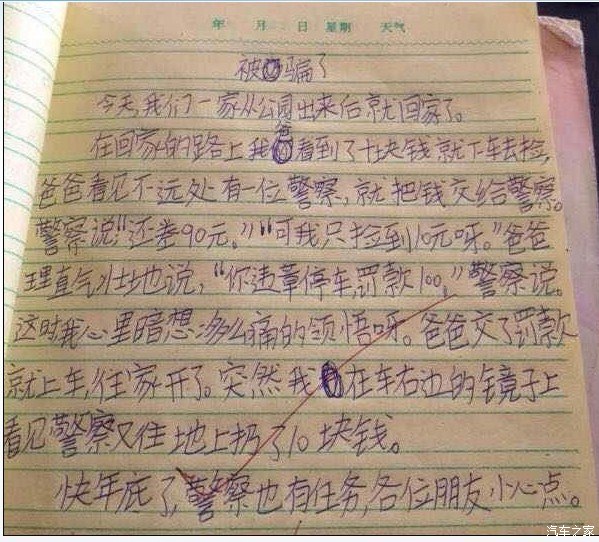 年 月 日 星期 天气
被骗了
今天,我们一家从公园出来后就回家了。
在回家的路上我爸看到了十块钱就下车去捡,
爸爸看见不远处有一位警察,就把钱交给警察。
警察说"还差90元。""可我只捡到10元呀。"爸爸
理直气壮地说,"你违章停车,罚款100,"警察说。
这时我心里暗想:多么痛的领悟呀。爸爸交了罚款
就上车,往家开了。突然我在车右边的镜子上
看见警察又往地上扔了10块钱。
快年底了,警察也有任务,各位朋友小心点。
汽车之家